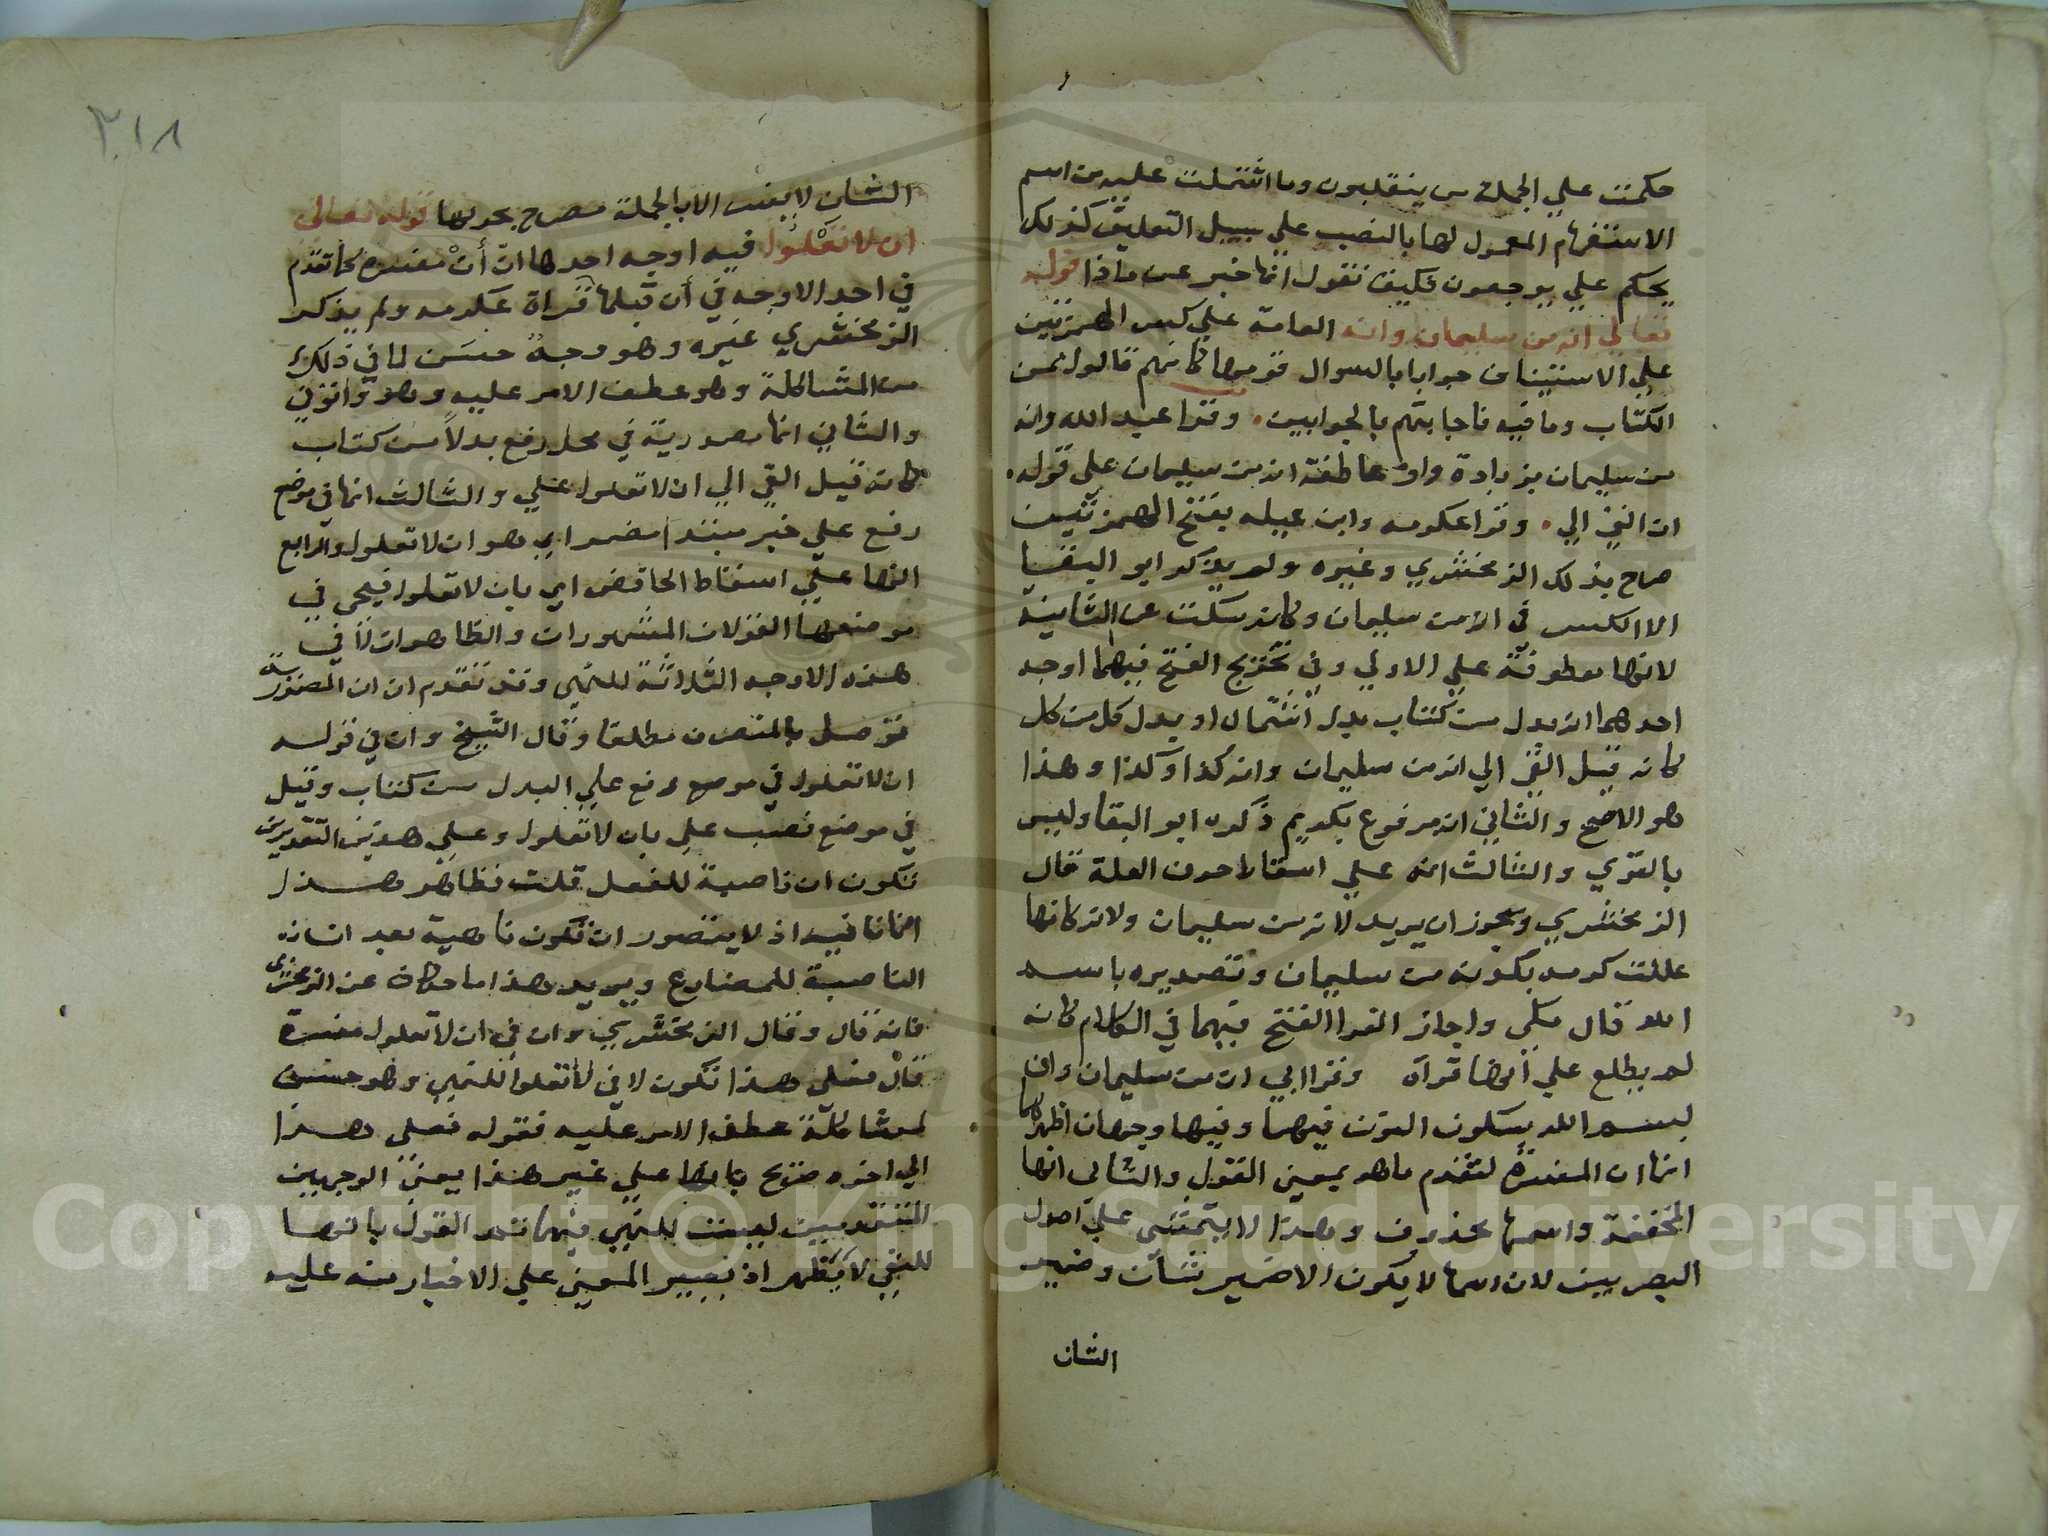 حكمت علي الجملة من ينقلبون وما اشتملت عليه من اسم
الاستفهام المعمول لها بالنصب علي سبيل التعليق كذلك
يحكم علي يرجعون فكيف تقول انها خبر عن ماذا قوله
تعالي انه من سليمان وانه العامة علي كسر الهمزتين
علي الاستيناف جوابا بالسوال قومها كانهم قالوا ممن
الكتاب وما فيه فاجابتهم بالجوابين وقرا عبد الله وانه
من سليمان بزيادة واو عاطفة انه من سليمان علي قوله
اني القي الي وقرا عكرمه وابن عبله بفتح الهمزتين
صرح بذلك الزمخشري وغيره ولم يذكر ابو البقا
الا الكسر في انه من سليمان وكانه سكت عن الثانية
لانها معطوفة علي الاولي وفي تخريج الفتح فيهما اوجه
احدهما انه بدل من كتاب بدل اشتمال او بدل كل من كل
كانه قيل القي الي انه من سليمان وانه كذا وكذا وهذا
هو الاصح والثاني انه مرفوع بكريم ذكره ابو البقا وليس
بالقوي والثالث انه علي اسقاط حرف العلة قال
الزمخشري ويجوز ان يريد لانه من سليمان ولانه كانها
عللت كرمه بكونه من سليمان وتصديره باسم
الله قال مكي واجاز الفرا الفتح فيهما في الكلام كانه
لم يطلع علي انها قراة وقرا ابي ان من سليمان وان
بسم الله بسكون النون فيهما وفيها وجهان اظهرهما
انها ان المفسرة لتقدم ما هو بمعني القول والثاني انها
المخففة واسمها محذوف وهذا لا يتمشي علي اصول
البصريين لان اسمها لا يكون الا ضمير شان وضمير
الشان
٣١٨
الشان لا يفسر الا بالجملة مصرح بجزيها قوله تعالى
ان لا تعلوا فيه اوجه احدها ان أنْ مفسرة كما تقدم
في احد الاوجه في أن قبلها قراة عكرمه ولم يذكر
الزمخشري غيره وهو وجه حسن لما في ذلك
من المشاكلة وهو عطف الامر عليه وهو واتوني
والثاني انها مصدرية في محل رفع بدلاً من كتاب
كانه قيل القي الي ان لا تعلوا علي والثالث انها في موضع
رفع علي خبر مبتدا مضمر اي هو ان لا تعلوا والرابع
انها علي اسقاط الخافض اي بان لا تعلوا فيجي في
موضعها القولان المشهوران والظاهر ان لا في
هذه الاوجه الثلاثة للنهي وقد تقدم ان ان المصدرية
توصل بالمتصرف مطلقا وقال الشيخ وان في قوله
ان لا تعلوا في موضع رفع علي البدل من كتاب وقيل
في موضع نصب علي بان لا تعلوا وعلي هذين التقديرين
تكون ان ناصبة للفعل قلت فظاهر هذا
انها نافيه اذ لا يتصور ان تكون ناهية بعد ان
الناصبة للمضارع ويريد هذا ما حكاه عن الزمخشري
فانه قال وقال الزمخشري وان في ان لا تعلوا مفسرة
قال فعلي هذا تكون لا في لا تعلوا للنهي وهو حسن
لمشاكلة عطف الامر عليه فقوله فعلي هذا
الي اخره صريح بانها علي غير هذا يعني الوجهين
المتقدمين ليست للنهي فيهما ثم القول بانها
للنفي لا يظهر اذ يصير المعني علي الاخبار منه عليه